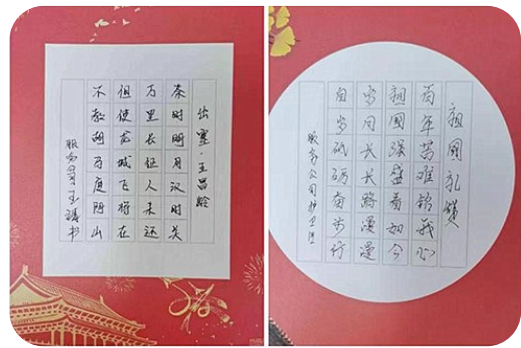 出塞·王昌龄
秦时明月汉时关
万里长征人未还
但使龙城飞将在
不教胡马度阴山
服务公司王书
祖国礼赞
百年苦难铭我心
祖国强盛看如今
月长长路漫漫
自当砥砺奋步行
服务公司